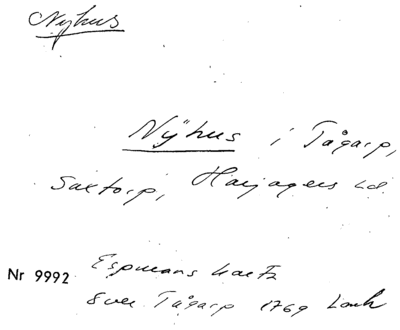 Nyhus
Nÿhus i Tågarp,
Saxtorp, Harjagers hd.
Nr 9992 Espmans karta
över Tågarp 1769 Lanh